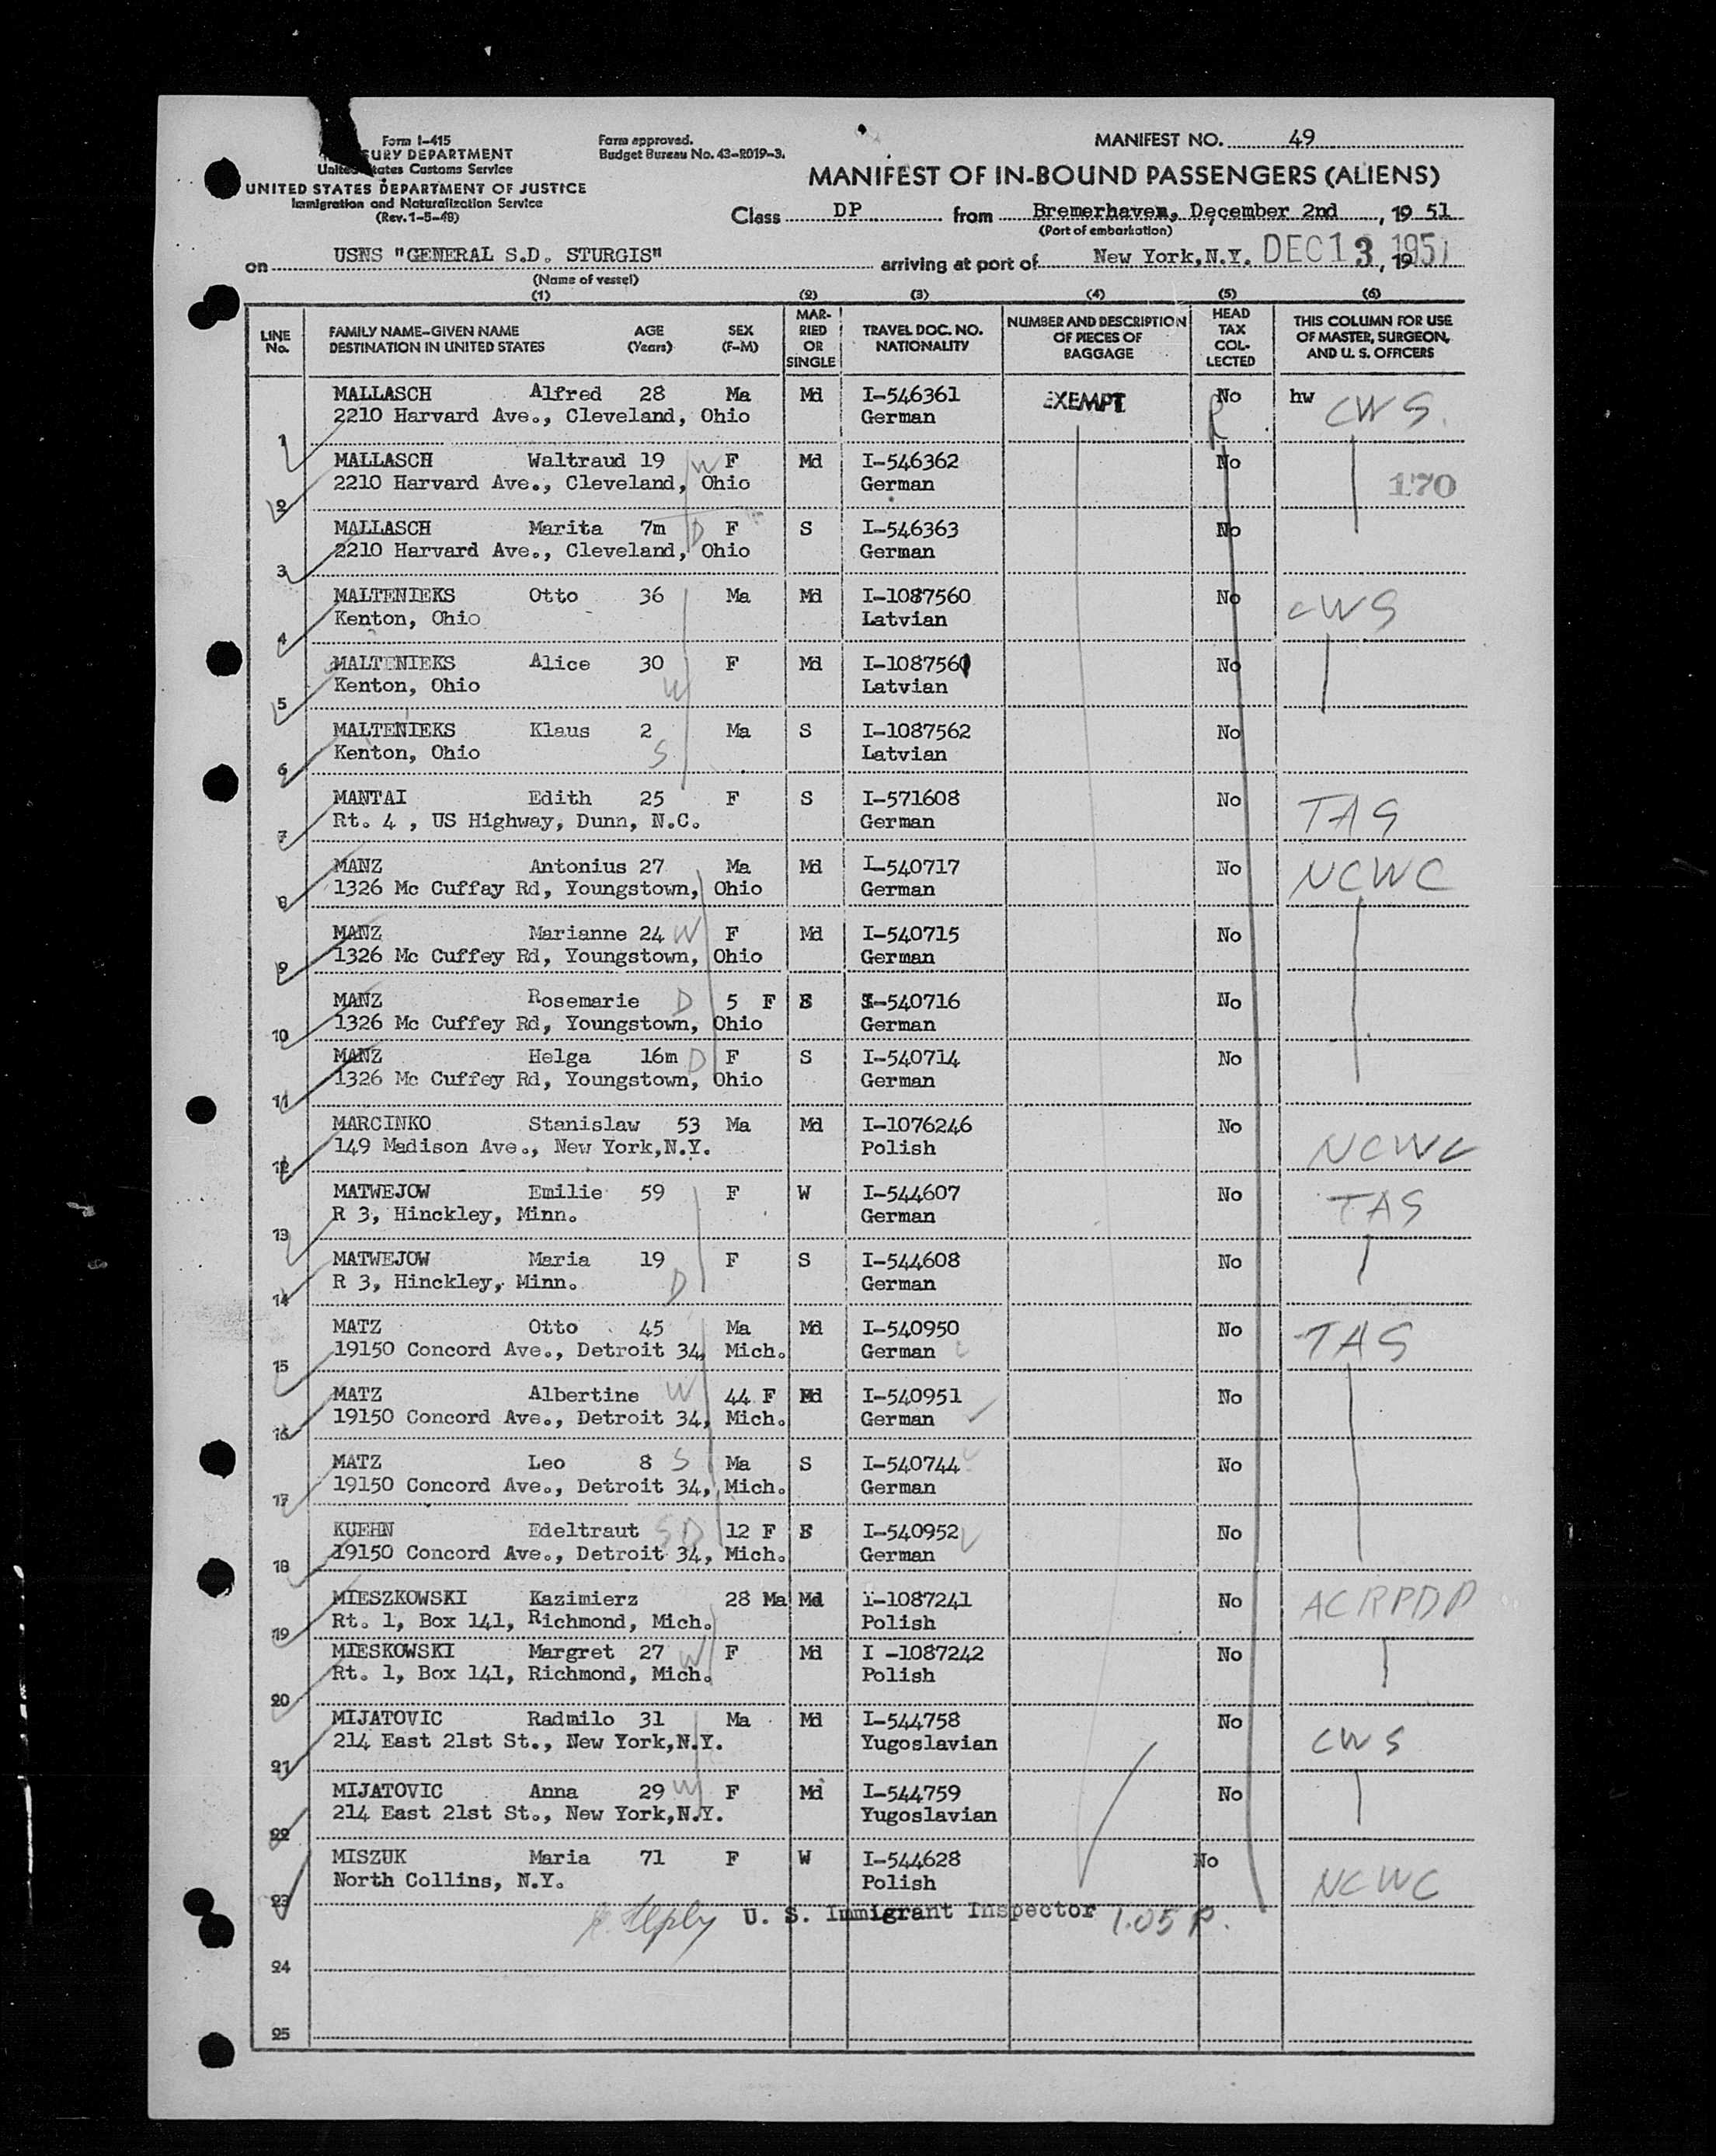 Form I-415
SURY DEPARTMENT
United States Customs Service
UNITED STATES DEPARTMENT OF JUSTICE
Immigration and Naturalization Service
(Rev. 1-5-49)
Form approved.
Budget Bureau No. 43-R019-3.
MANIFEST NO. 49
MANIFEST OF IN-BOUND PASSENGERS (ALIENS)
Class DP from Bremerhaven, December 2nd, 19 51
(Port of embarkation)
on USNS "GENERAL S.D. STURGIS" arriving at port of New York,N.Y. DEC 13 1951, 19
(Name of vessel)
(1) (2) (3) (4) (5) (6)
LINE No.
FAMILY NAME-GIVEN NAME AGE SEX
DESTINATION IN UNITED STATES (Years) (F-M)
MARRIED OR SINGLE
TRAVEL DOC. NO. NATIONALITY
NUMBER AND DESCRIPTION OF PIECES OF BAGGAGE
HEAD TAX COLLECTED
THIS COLUMN FOR USE OF MASTER, SURGEON, AND U. S. OFFICERS
MALLASCH Alfred 28 Ma Md I-546361 EXEMPT No hw CWS
2210 Harvard Ave., Cleveland, Ohio German
1
MALLASCH Waltraud 19 W F Md I-546362 No
2210 Harvard Ave., Cleveland, Ohio German 170
2
MALLASCH Marita 7m D F S I-546363 No
2210 Harvard Ave., Cleveland, Ohio German
3
MALTENIEKS Otto 36 Ma Md I-1087560 No CWS
Kenton, Ohio Latvian
4
MALTENIEKS Alice 30 F Md I-1087561 No
Kenton, Ohio W Latvian
5
MALTENIEKS Klaus 2 Ma S I-1087562 No
Kenton, Ohio S Latvian
6
MANTAI Edith 25 F S I-571608 No TAS
Rt. 4 , US Highway, Dunn, N.C. German
7
MANZ Antonius 27 Ma Md I-540717 No NCWC
1326 Mc Cuffay Rd, Youngstown, Ohio German
8
MANZ Marianne 24 W F Md I-540715 No
1326 Mc Cuffey Rd, Youngstown, Ohio German
9
MANZ Rosemarie D 5 F S I-540716 No
1326 Mc Cuffey Rd, Youngstown, Ohio German
10
MANZ Helga 16m D F S I-540714 No
1326 Mc Cuffey Rd, Youngstown, Ohio German
11
MARCINKO Stanislaw 53 Ma Md I-1076246 No
149 Madison Ave., New York,N.Y. Polish NCWC
12
MATWEJOW Emilie 59 F W I-544607 No TAS
R 3, Hinckley, Minn. German
13
MATWEJOW Maria 19 F S I-544608 No
R 3, Hinckley, Minn. D German
14
MATZ Otto 45 Ma Md I-540950 No TAS
19150 Concord Ave., Detroit 34, Mich. German
15
MATZ Albertine W 44 F Md I-540951 No
19150 Concord Ave., Detroit 34, Mich. German
16
MATZ Leo 8 S Ma S I-540744 No
19150 Concord Ave., Detroit 34, Mich. German
17
KUEHN Edeltraut SD 12 F S I-540952 No
19150 Concord Ave., Detroit 34, Mich. German
18
MIESZKOWSKI Kazimierz 28 Ma Md i-1087241 No ACRPDP
Rt. 1, Box 141, Richmond, Mich. Polish
19
MIESKOWSKI Margret 27 W F Md I -1087242 No
Rt. 1, Box 141, Richmond, Mich. Polish
20
MIJATOVIC Radmilo 31 Ma Md I-544758 No
214 East 21st St., New York,N.Y. Yugoslavian CWS
21
MIJATOVIC Anna 29 W F Md I-544759 No
214 East 21st St., New York,N.Y. Yugoslavian
22
MISZUK Maria 71 F W I-544628 No
North Collins, N.Y. Polish NCWC
23
U. S. Immigrant Inspector 1.05 P.
24
25